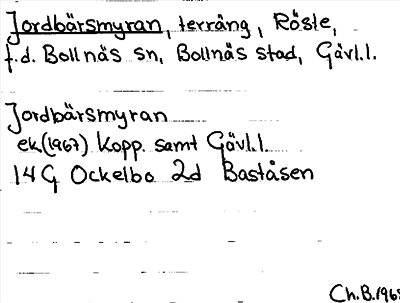 Jordbärsmyran, terräng, Röste,
f.d. Bollnäs sn, Bollnäs stad, Gävl.l.
Jordbärsmyran
ek(1967) Kopp. samt Gävl.l.
14G Ockelbo 2d Baståsen
Ch.B.196